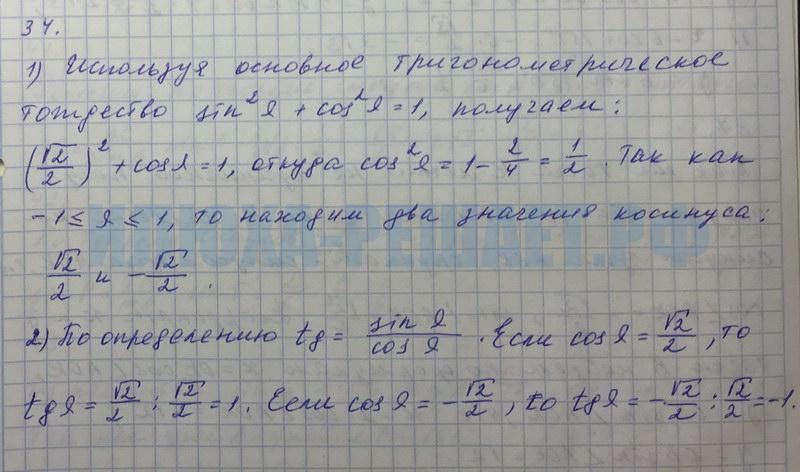 34.
1) Используя основное тригонометрическое
тождество sin²α + cos²α = 1, получаем:
(√2/2)² + cosα = 1, откуда cos²α = 1 - 2/4 = 1/2. Так как
-1 ≤ α ≤ 1, то находим два значения косинуса:
ШКОЛА-РЕШАЕТ.РФ
√2/2 и -√2/2.
2) По определению tg = sin α/cos α. Если cos α = √2/2, то
tg α = √2/2 : √2/2 = 1. Если cos α = -√2/2, то tg α = -√2/2 : √2/2 = -1.